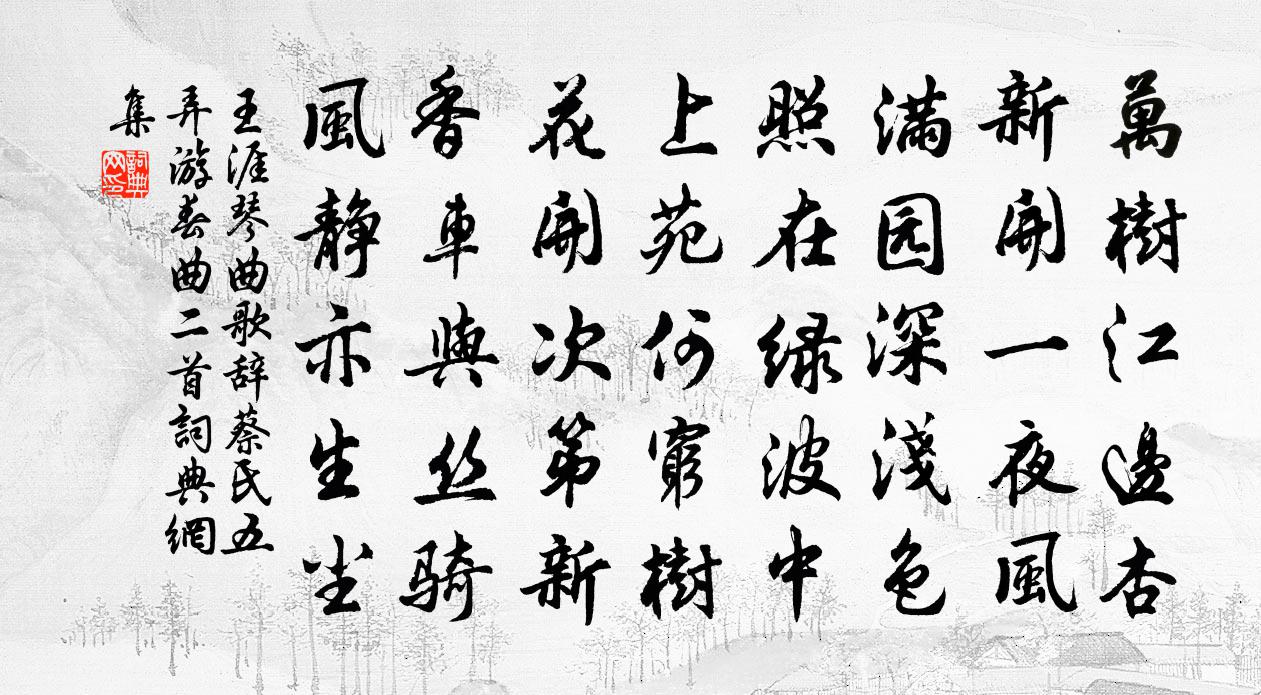 萬樹江邊杏
新開一夜風
满园深淺色
照在绿波中
上苑何窮樹
花開次第新
香車與丝騎
風静亦生尘
王涯琴曲歌辞蔡氏五
弄游春曲二首詞典網
集
詞典网印